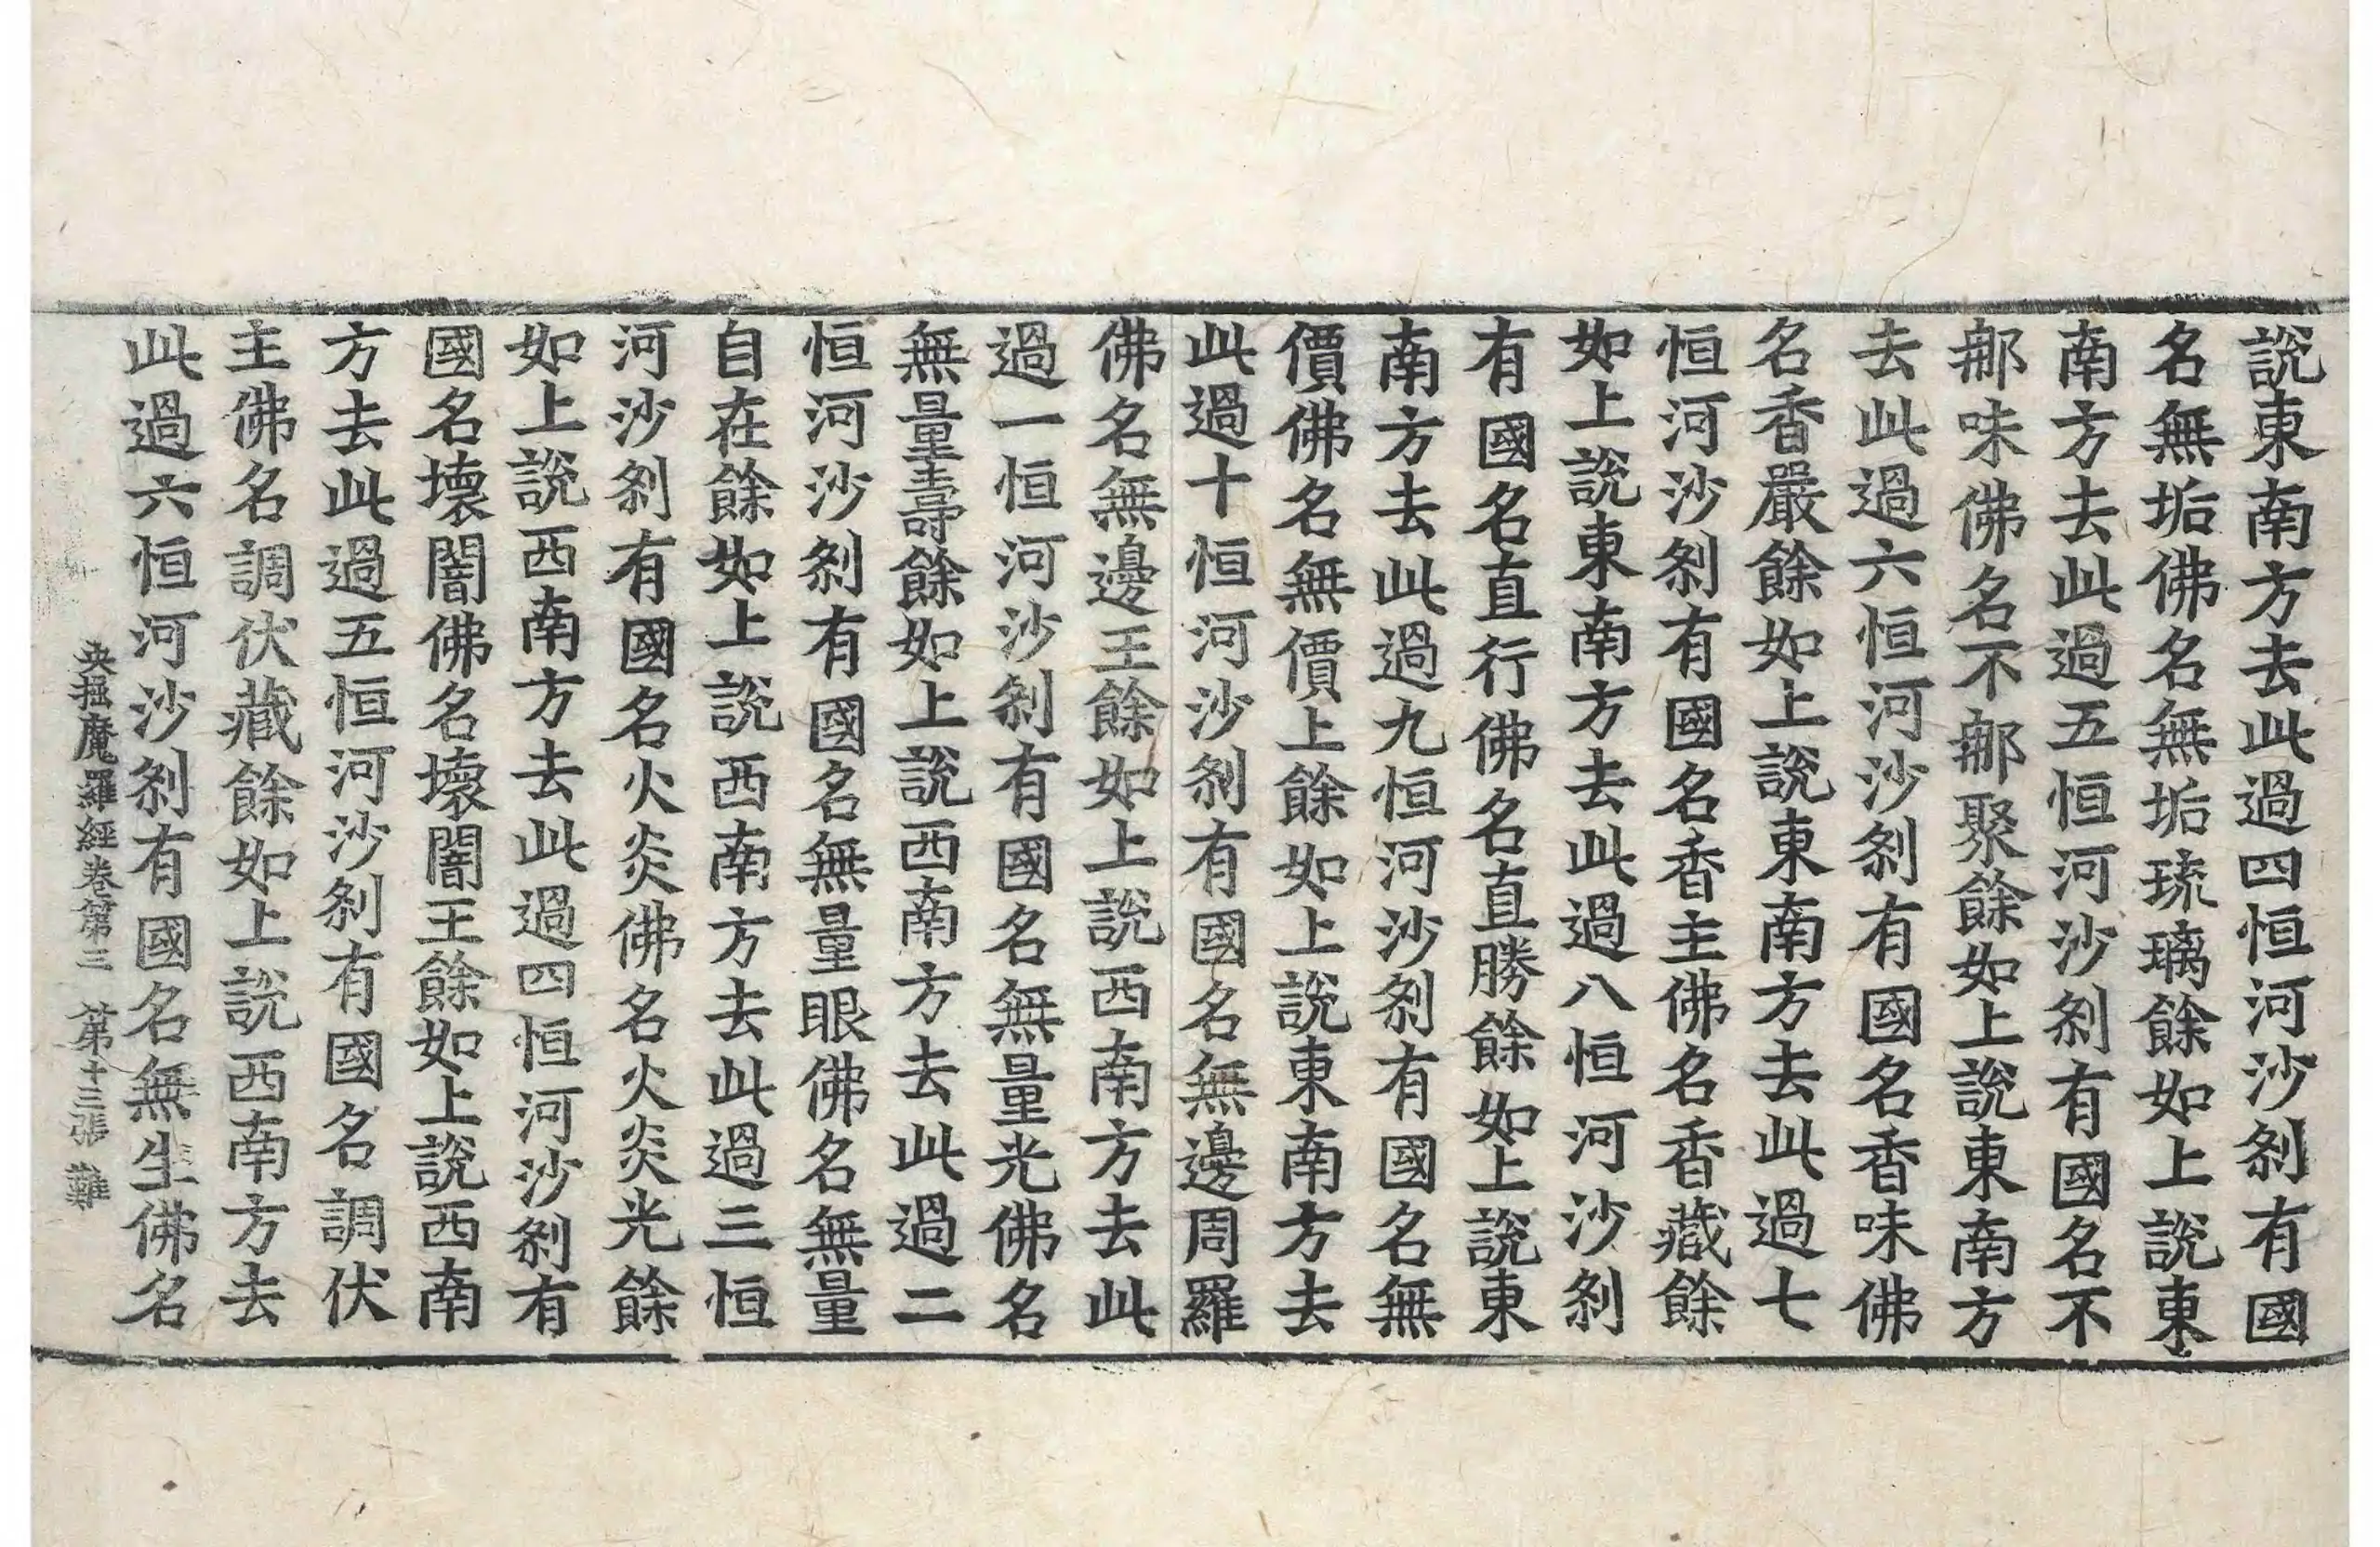 說東南方去此過四恒河沙刹有國
名無垢佛名無垢琉璃餘如上說東
南方去此過五恒河沙刹有國名不
鄅味佛名不鄅聚餘如上說東南方
去此過六恒河沙刹有國名香味佛
名香嚴餘如上說東南方去此過七
恒河沙刹有國名香主佛名香藏餘
如上說東南方去此過八恒河沙刹
有國名直行佛名直勝餘如上說東
南方去此過九恒河沙刹有國名無
價佛名無價上餘如上說東南方去
此過十恒河沙刹有國名無邊周羅
佛名無邊王餘如上說西南方去此
過一恒河沙刹有國名無量光佛名
無量壽餘如上說西南方去此過二
恒河沙刹有國名無量眼佛名無量
自在餘如上說西南方去此過三恒
河沙刹有國名火炎佛名火炎光餘
如上說西南方去此過四恒河沙刹有
國名壞闇佛名壞闇王餘如上說西南
方去此過五恒河沙刹有國名調伏
主佛名調伏藏餘如上說西南方去
此過六恒河沙刹有國名無生佛名
央掘魔羅經卷第三 第十三張 難